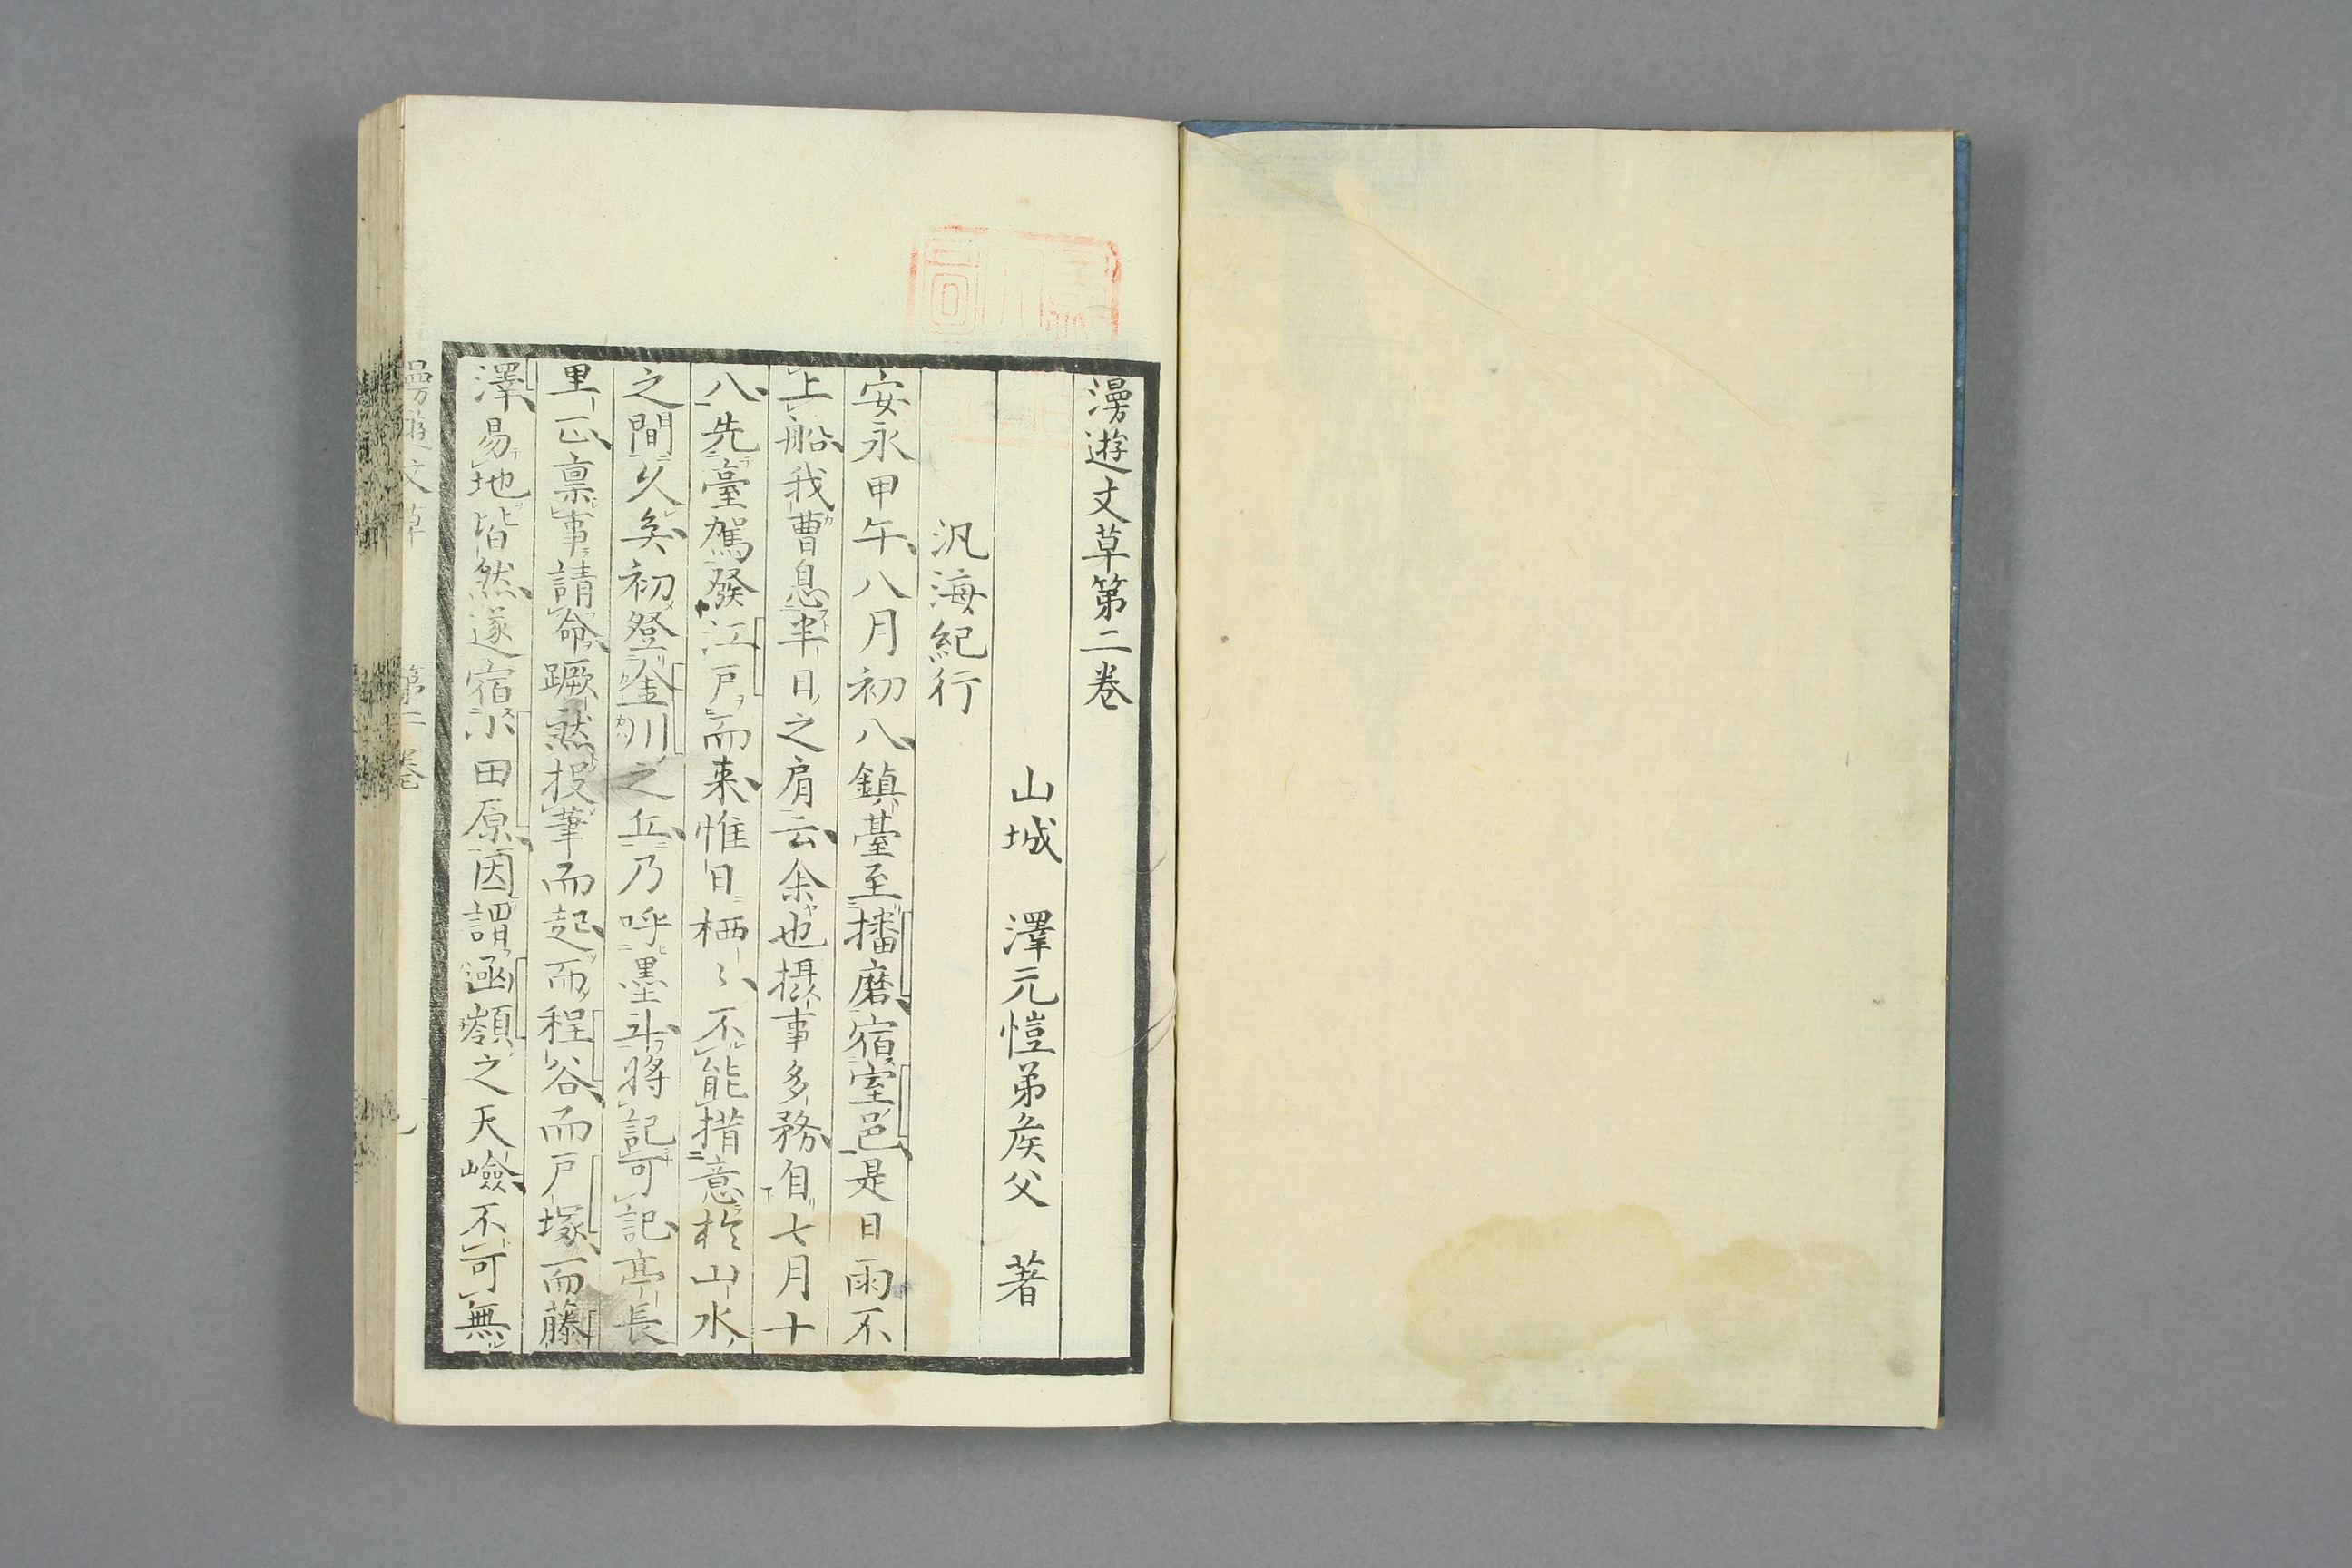 漫遊文草第二巻
山城　澤元愷弟矦父　著
汎海紀行
安永甲午八月初八鎮臺至播磨宿室邑是日雨不
上船我曹息半日之肩云余也摂事多務自七月十
八先臺駕發江戸而来惟日栖〻不能措意於山水
之間久矣初登金川之丘乃呼墨斗将記可記亭長
里正稟事請命蹶然投筆而起而程谷而戸塚而藤
澤易地皆然遂宿小田原因謂函嶺之天嶮不可無
漫遊文草　第二巻